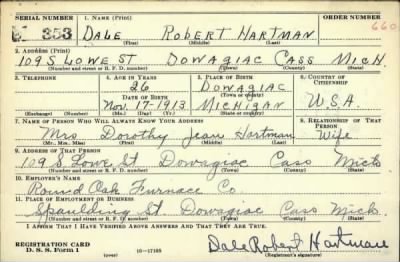 SERIAL NUMBER 1. NAME (Print) ORDER NUMBER
353 DALE ROBERT HARTMAN 660
(First) (Middle) (Last)
2. ADDRESS (Print)
109 S LOWE ST DOWAGIAC CASS MICH.
(Number and street or R. F. D. number) (Town) (County) (State)
3. TELEPHONE 4. AGE IN YEARS 5. PLACE OF BIRTH 6. COUNTRY OF CITIZENSHIP
26 DOWAGIAC
DATE OF BIRTH (Town or county)
NOV. 17-1913 MICHIGAN U.S.A.
(Exchange) (No.) (Mo.) (Day) (Yr.) (State or country)
7. NAME OF PERSON WHO WILL ALWAYS KNOW YOUR ADDRESS 8. RELATIONSHIP OF THAT PERSON
Mrs. Dorothy Jean Hartman Wife
(Mr., Mrs., Miss) (First) (Middle) (Last)
9. ADDRESS OF THAT PERSON
109 S Lowe St Dowagiac Cass Mich
(Number and street or R. F. D. number) (Town) (County) (State)
10. EMPLOYER'S NAME
Round Oak Furnace Co.
11. PLACE OF EMPLOYMENT OR BUSINESS
Spaulding St. Dowagiac Cass Mich
(Number and street or R. F. D. number) (Town) (County) (State)
I AFFIRM THAT I HAVE VERIFIED ABOVE ANSWERS AND THAT THEY ARE TRUE.
REGISTRATION CARD
D. S. S. Form 1 (over) 16-17105 Dale Robert Hartman
(Registrant's signature)